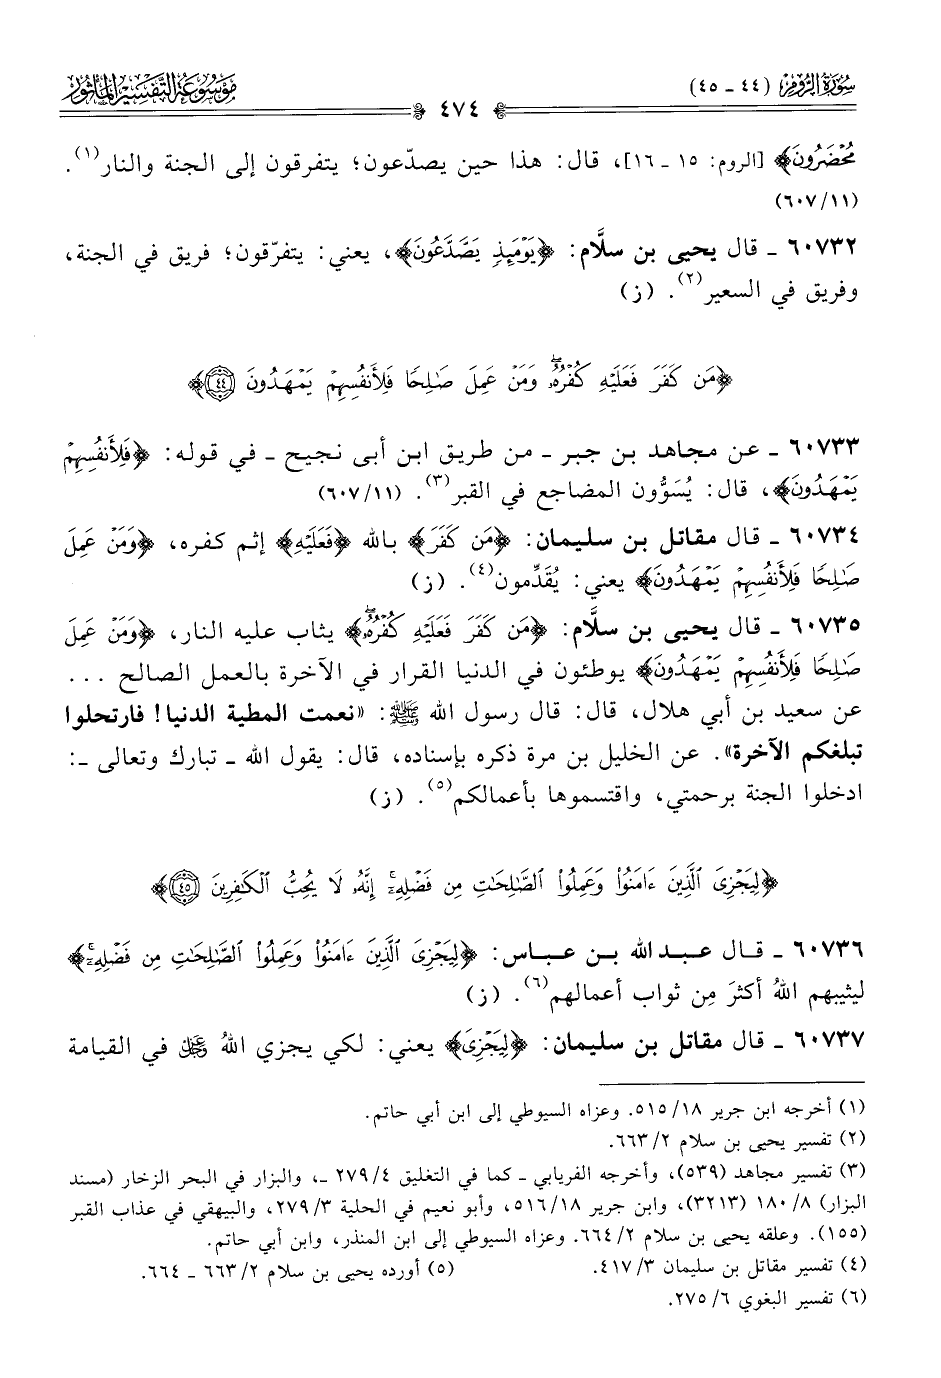 سورة الروم (٤٤ ـ ٤٥)
موسوعة التفسير المأثور
٤٧٤
مُحْضَرُونَ﴾ [الروم: ١٥ ـ ١٦]، قال: هذا حين يصدّعون؛ يتفرقون إلى الجنة والنار(١).
(١١/ ٦٠٧)
٦٠٧٣٢ ـ قال يحيى بن سلَّام: ﴿يَوْمَئِذٍ يَصَّدَّعُونَ﴾، يعني: يتفرّقون؛ فريق في الجنة،
وفريق في السعير(٢). (ز)
﴿مَن كَفَرَ فَعَلَيْهِ كُفْرُهُۥۖ وَمَنْ عَمِلَ صَـٰلِحًا فَلِأَنفُسِهِمْ يَمْهَدُونَ ٤٤﴾
٦٠٧٣٣ ـ عن مجاهد بن جبر ـ من طريق ابن أبي نجيح ـ في قوله: ﴿فَلِأَنفُسِهِمْ
يَمْهَدُونَ﴾، قال: يُسَوُّون المضاجع في القبر(٣). (١١/ ٦٠٧)
٦٠٧٣٤ ـ قال مقاتل بن سليمان: ﴿مَن كَفَرَ﴾ بالله ﴿فَعَلَيْهِ﴾ إثم كفره، ﴿وَمَنْ عَمِلَ
صَـٰلِحًا فَلِأَنفُسِهِمْ يَمْهَدُونَ﴾ يعني: يُقَدِّمون(٤). (ز)
٦٠٧٣٥ ـ قال يحيى بن سلَّام: ﴿مَن كَفَرَ فَعَلَيْهِ كُفْرُهُۥۖ﴾ يثاب عليه النار، ﴿وَمَنْ عَمِلَ
صَـٰلِحًا فَلِأَنفُسِهِمْ يَمْهَدُونَ﴾ يوطئون في الدنيا القرار في الآخرة بالعمل الصالح ...
عن سعيد بن أبي هلال، قال: قال رسول الله ﷺ: «نعمت المطية الدنيا! فارتحلوا
تبلغكم الآخرة». عن الخليل بن مرة ذكره بإسناده، قال: يقول الله ـ تبارك وتعالى ـ:
ادخلوا الجنة برحمتي، واقتسموها بأعمالكم(٥). (ز)
﴿لِيَجْزِىَ ٱلَّذِينَ ءَامَنُوا۟ وَعَمِلُوا۟ ٱلصَّـٰلِحَـٰتِ مِن فَضْلِهِۦٓ إِنَّهُۥ لَا يُحِبُّ ٱلْكَـٰفِرِينَ ٤٥﴾
٦٠٧٣٦ ـ قال عبد الله بن عباس: ﴿لِيَجْزِىَ ٱلَّذِينَ ءَامَنُوا۟ وَعَمِلُوا۟ ٱلصَّـٰلِحَـٰتِ مِن فَضْلِهِۦٓ﴾
ليثيبهم اللهُ أكثرَ مِن ثواب أعمالهم(٦). (ز)
٦٠٧٣٧ ـ قال مقاتل بن سليمان: ﴿لِيَجْزِىَ﴾ يعني: لكي يجزي اللهُ ﷻ في القيامة
(١) أخرجه ابن جرير ١٨/ ٥١٥. وعزاه السيوطي إلى ابن أبي حاتم.
(٢) تفسير يحيى بن سلام ٢/ ٦٦٣.
(٣) تفسير مجاهد (٥٣٩)، وأخرجه الفريابي ـ كما في التغليق ٤/ ٢٧٩ ـ، والبزار في البحر الزخار (مسند
البزار) ٨/ ١٨٠ (٣٢١٣)، وابن جرير ١٨/ ٥١٦، وأبو نعيم في الحلية ٣/ ٢٧٩، والبيهقي في عذاب القبر
(١٥٥). وعلقه يحيى بن سلام ٢/ ٦٦٤. وعزاه السيوطي إلى ابن المنذر، وابن أبي حاتم.
(٤) تفسير مقاتل بن سليمان ٣/ ٤١٧. (٥) أورده يحيى بن سلام ٢/ ٦٦٣ ـ ٦٦٤.
(٦) تفسير البغوي ٦/ ٢٧٥.